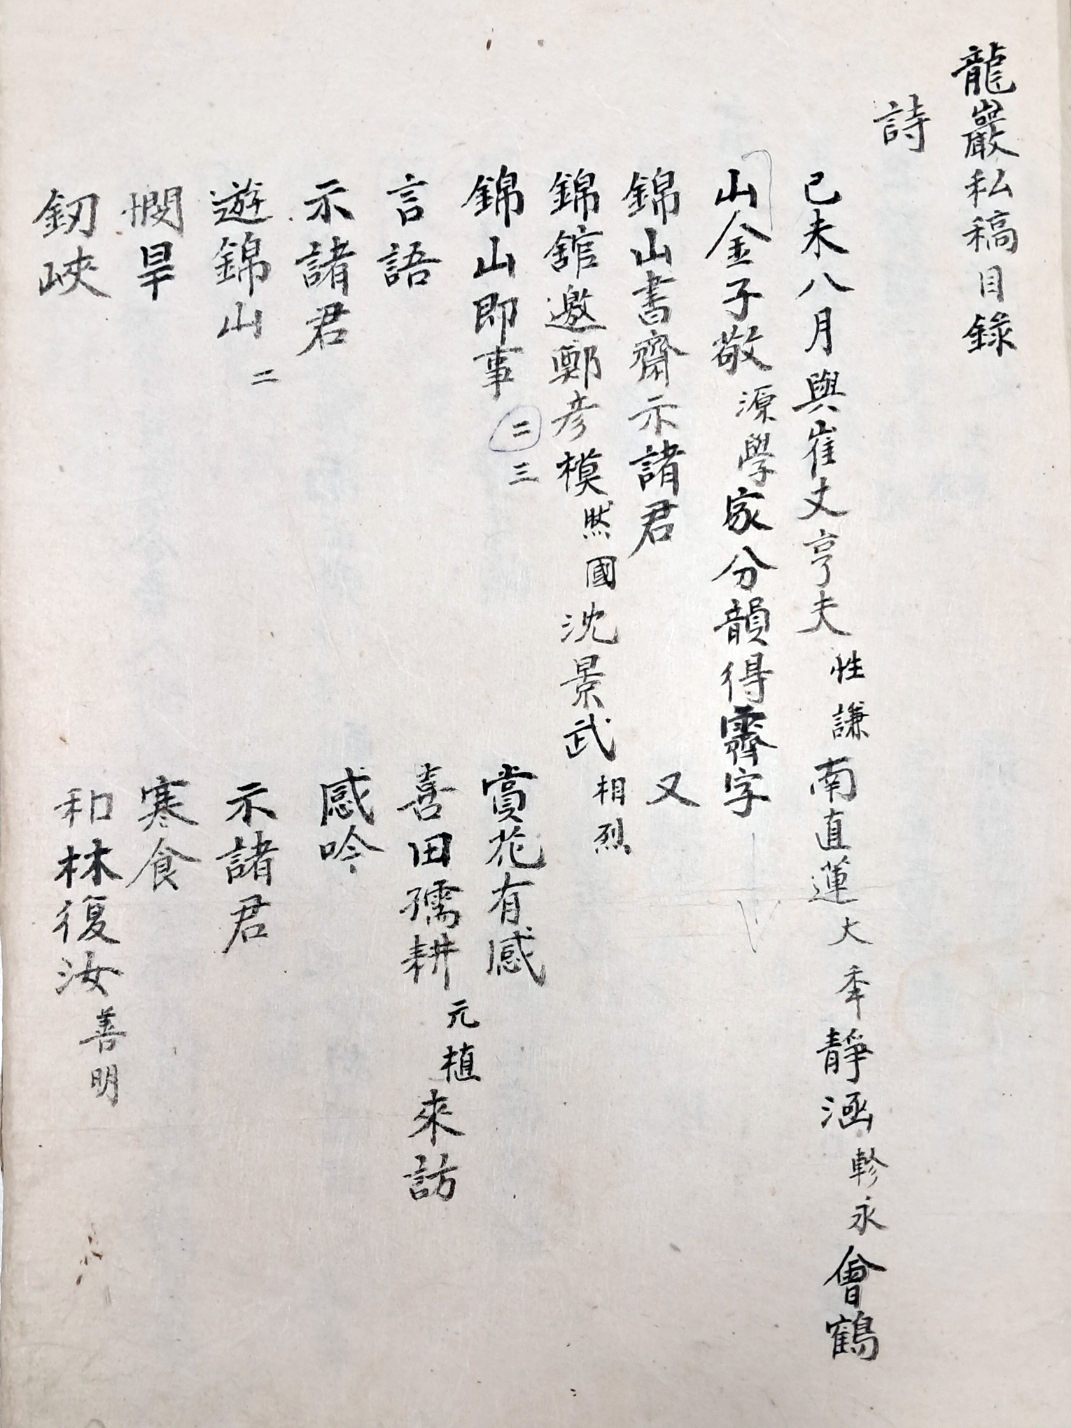 龍巖私稿目錄
詩
己未八月與崔丈亨夫性謙南直蓮大秊靜涵軫永會鶴
山金子敬源學家分韻得霽字
錦山書齋示諸君 又
錦舘邀鄭彦模㷡國沈景武相烈
錦山即事二三 賞花有感
言語 喜田孺耕元植來訪
示諸君 感吟
遊錦山二 示諸君
憫旱 寒食
釼峽 和林復汝善明